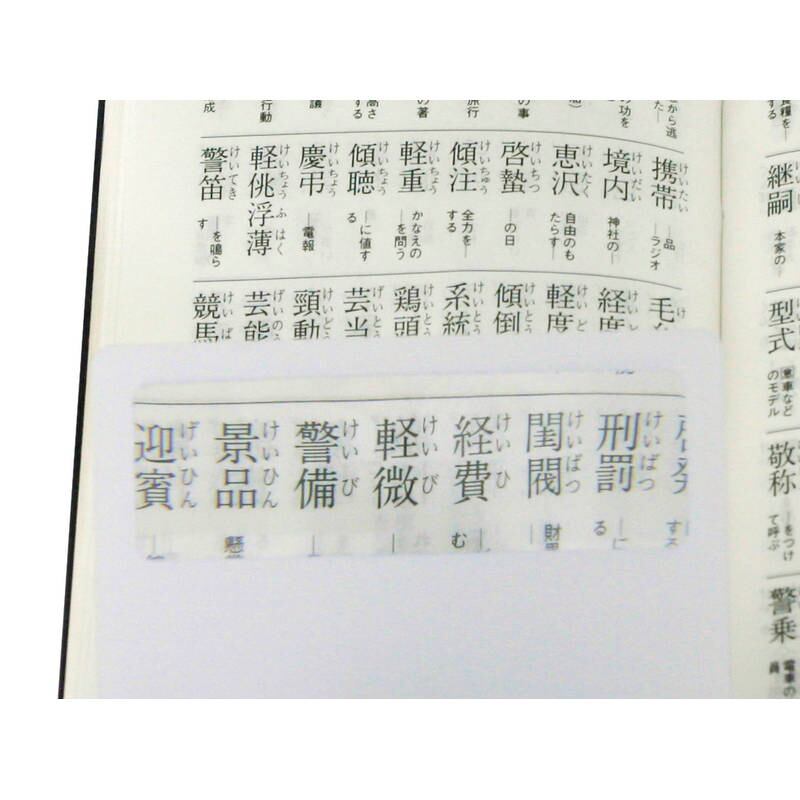 継嗣 けいし 本家の―
型式 ㊥車などのモデル
敬称 ―をつけて呼ぶ
警乗 電車の
から逃
の功を
の事
旅行
の著
高さする
議
行動
成
携帯 けいたい ―品 ―ラジオ
境内 けいだい 神社の―
恵沢 けいたく 自由のもたらす―
啓蟄 けいちつ ―の日
傾注 けいちゅう 全力を―する
軽重 けいちょう かなえの―を問う
傾聴 けいちょう ―に値する
慶弔 けいちょう ―電報
軽佻浮薄 けいちょうふはく
警笛 けいてき ―を鳴らす
毛 け
経度 けいど
軽度 けいど
傾倒 けいとう
系統 けいとう
鶏頭 けいとう
芸当 げいとう
頸動 けいどう
芸能 げいのう
競馬 けいば
刑罰 けいばつ
閨閥 けいばつ
経費 けいひ
軽微 けいび
警備 けいび
景品 けいひん
迎賓 げいひん